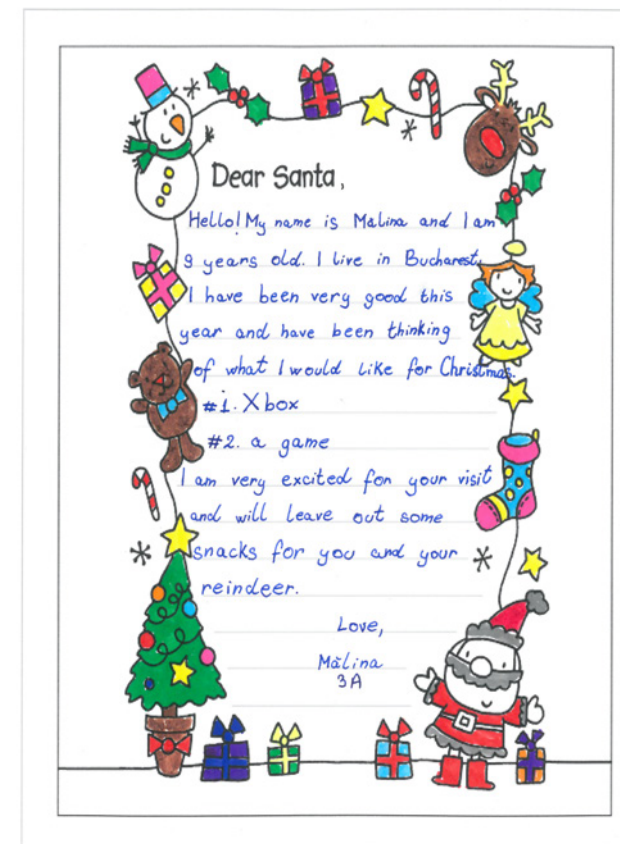 Dear Santa,
Hello! My name is Malina and I am
9 years old. I live in Bucharest.
I have been very good this
year and have been thinking
of what I would like for Christmas.
#1. Xbox
#2. a game
I am very excited for your visit
and will leave out some
snacks for you and your
reindeer.
Love,
Mălina
3A